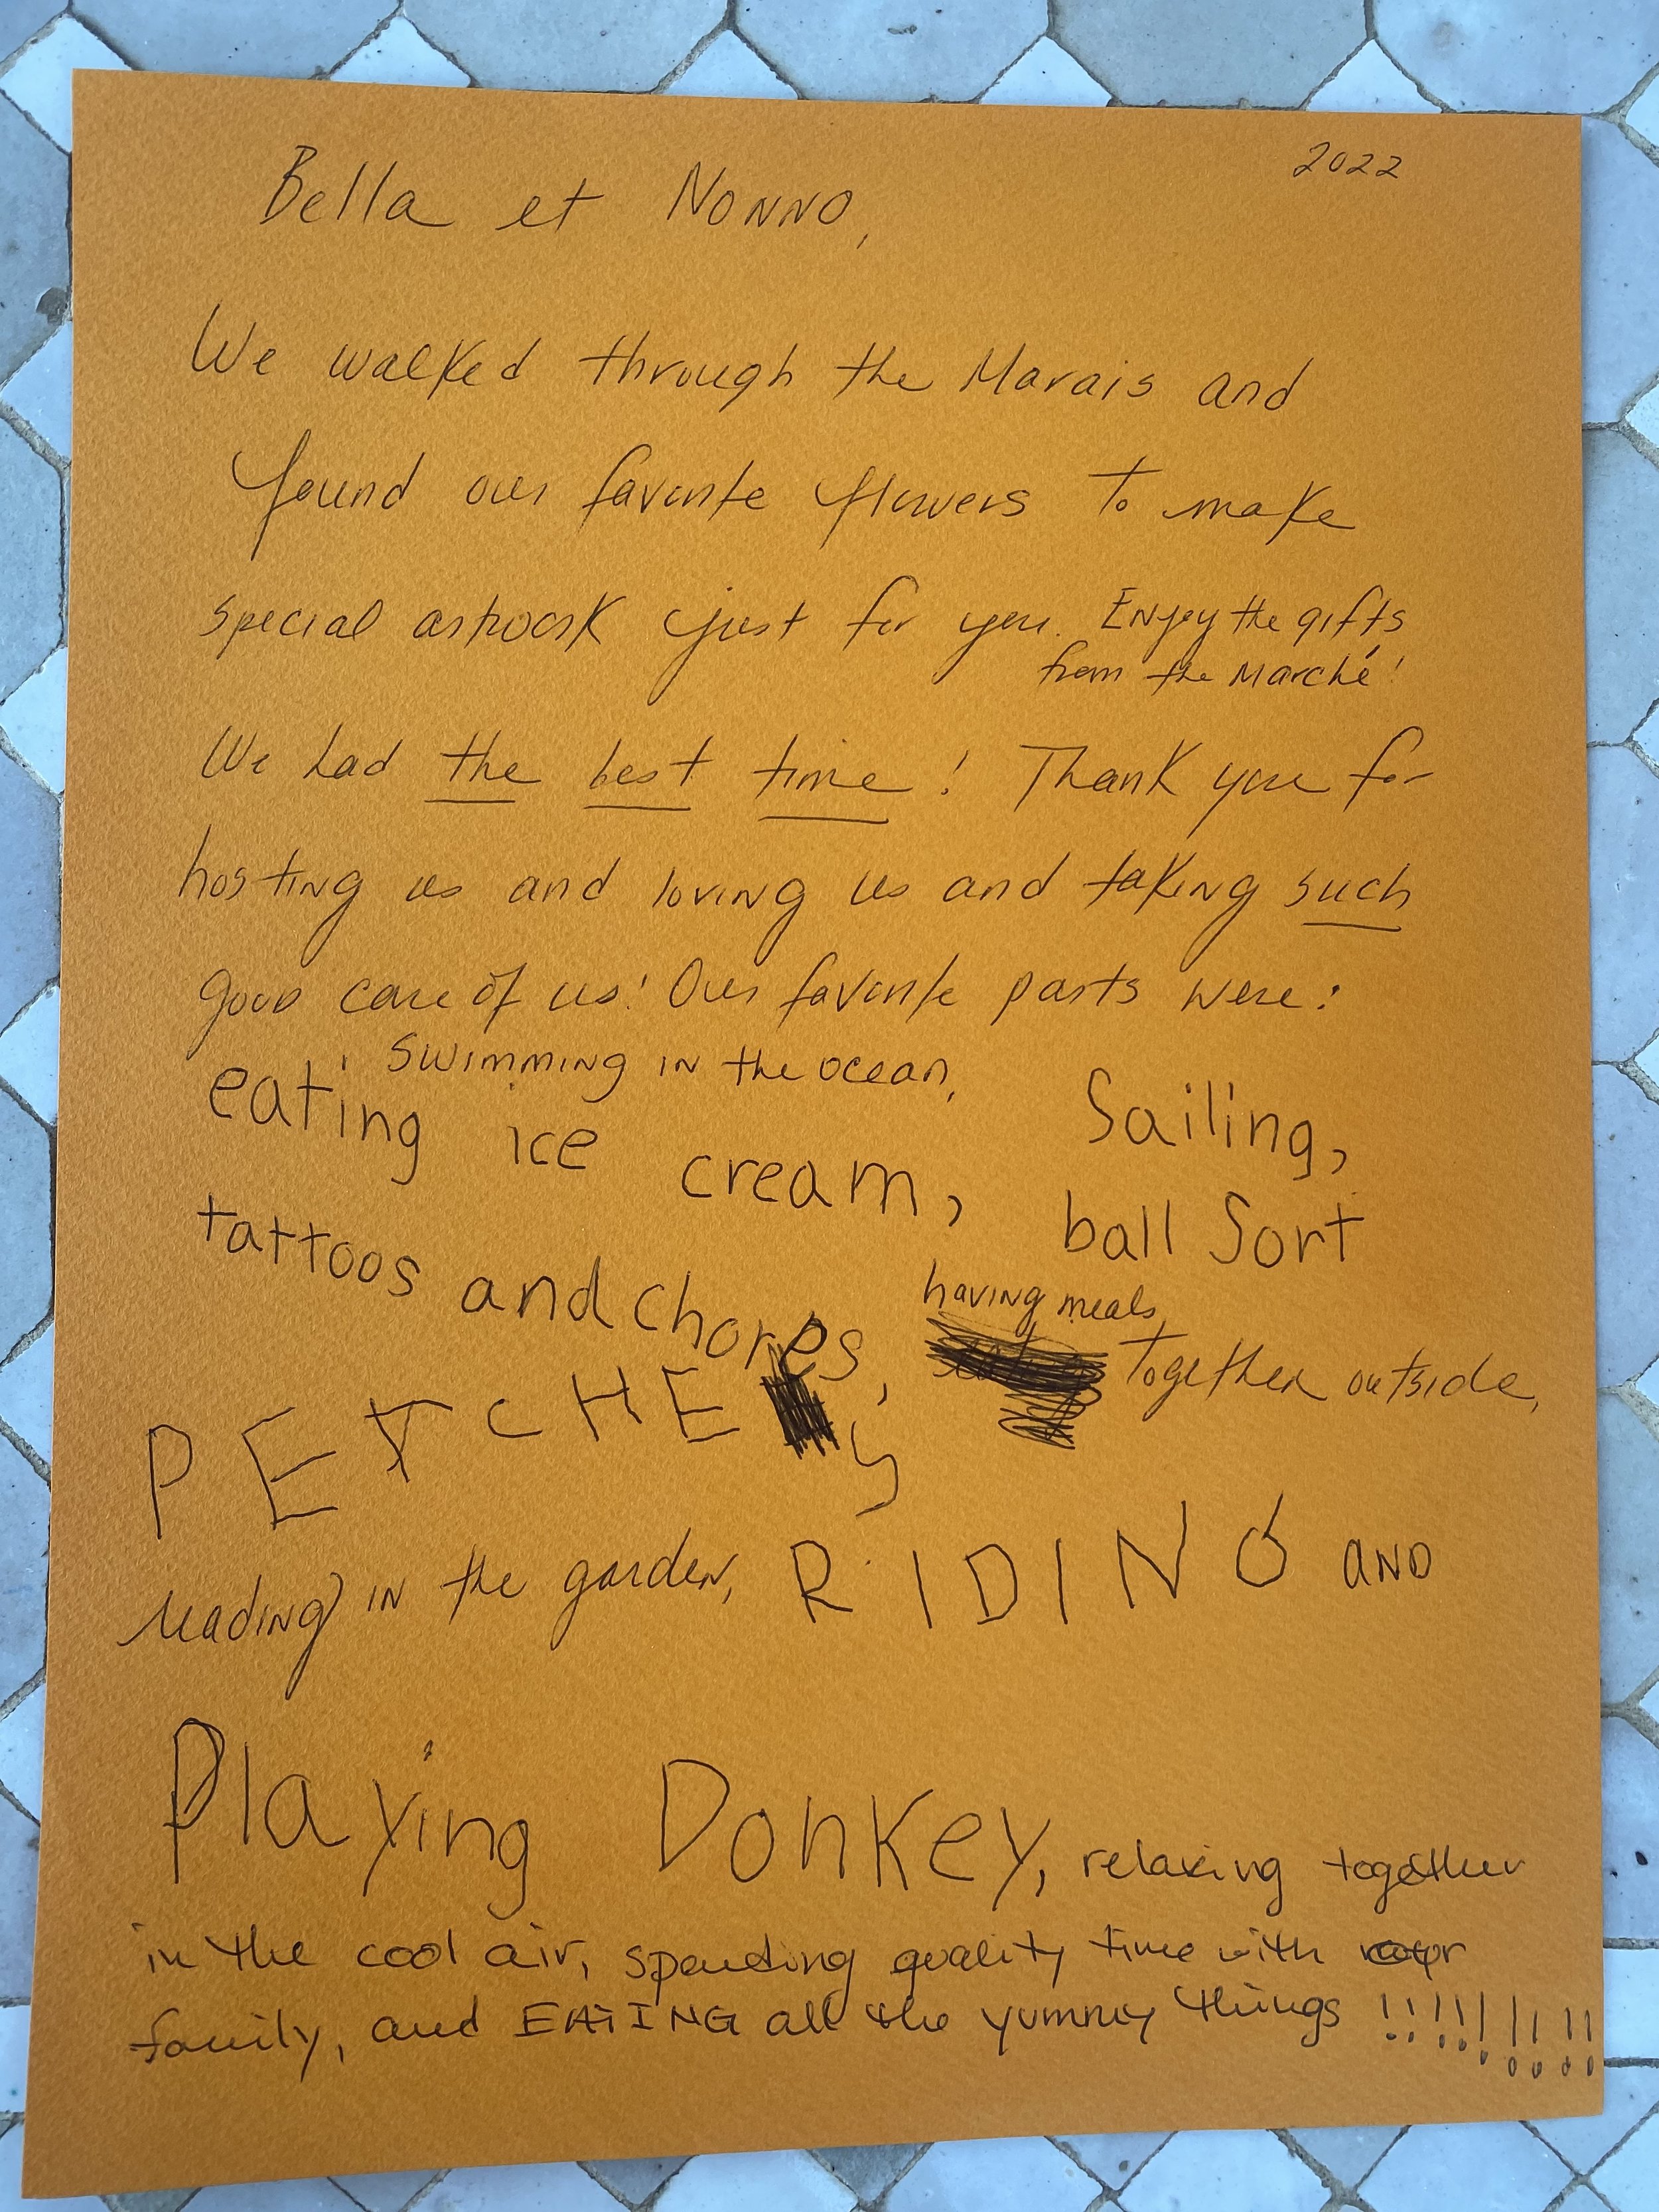 2022
Bella et Nonno,
We walked through the Marais and
found our favorite flowers to make
special artwork just for you. Enjoy the gifts
from the Marché!
We had the best time! Thank you for
hosting us and loving us and taking such
good care of us! Our favorite parts were:
swimming in the ocean,
eating ice cream, Sailing,
tattoos and chores, ball Sort
having meals
together outside,
PETCHES
reading in the garden, RIDING AND
Playing Donkey, relaxing together
in the cool air, spending quality time with our
family, and EATING all the yummy things !!!!!!!!!!